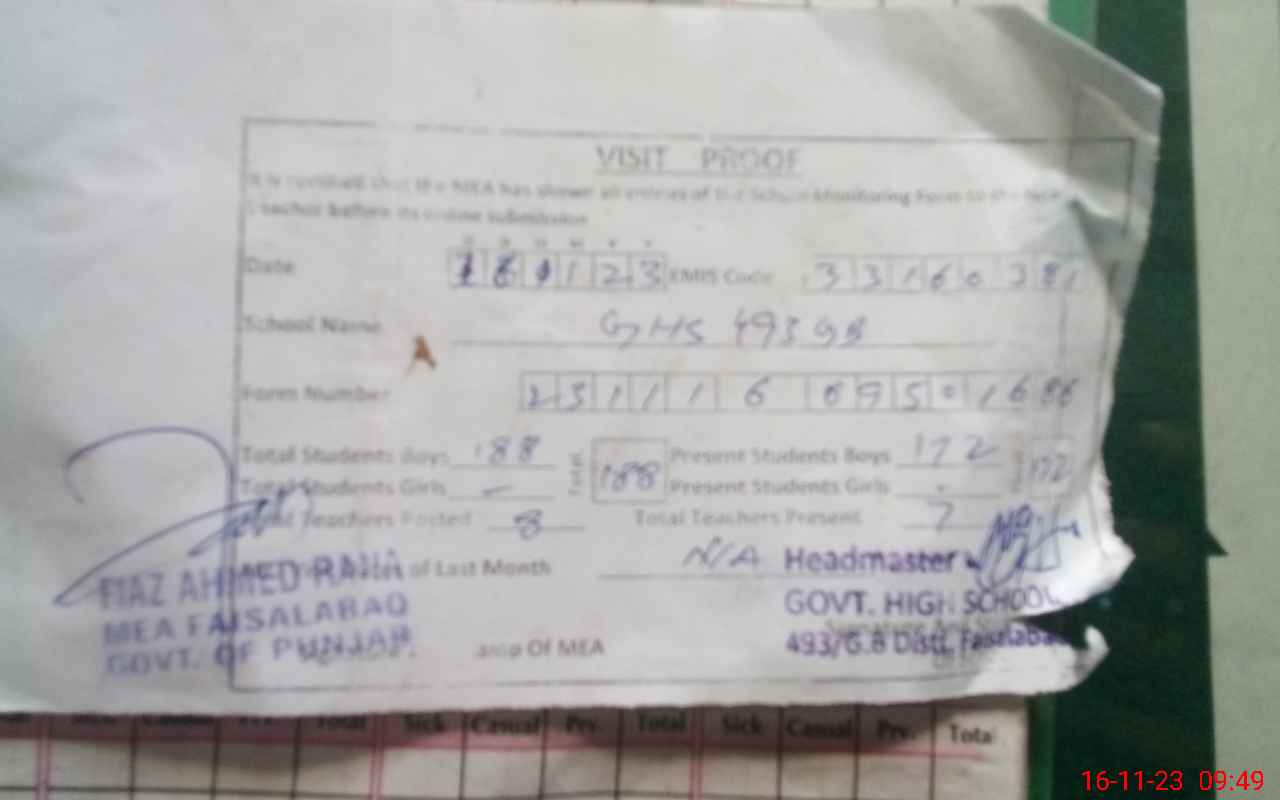 VISIT PROOF
It is certified that the MEA has shown all entries of the School Monitoring Form to the Head
Teacher before its online submission
Date 161123 EMIS Code 33160381
School Name GHS 493 GB
Form Number
Total Students Boys 188 Total 188 Present Students Boys 172 172
Total Students Girls - Present Students Girls -
Teachers Posted 8 Total Teachers Present 7
of Last Month N/A Headmaster
FIAZ AHMED RANA
MEA FAISALABAD
GOVT. OF PUNJAB.
Of MEA
GOVT. HIGH SCHOOL
493/G.B Distt. Faisalabad
Sick Casual Prv. Total Sick Casual Prv. Total
16-11-23 09:49